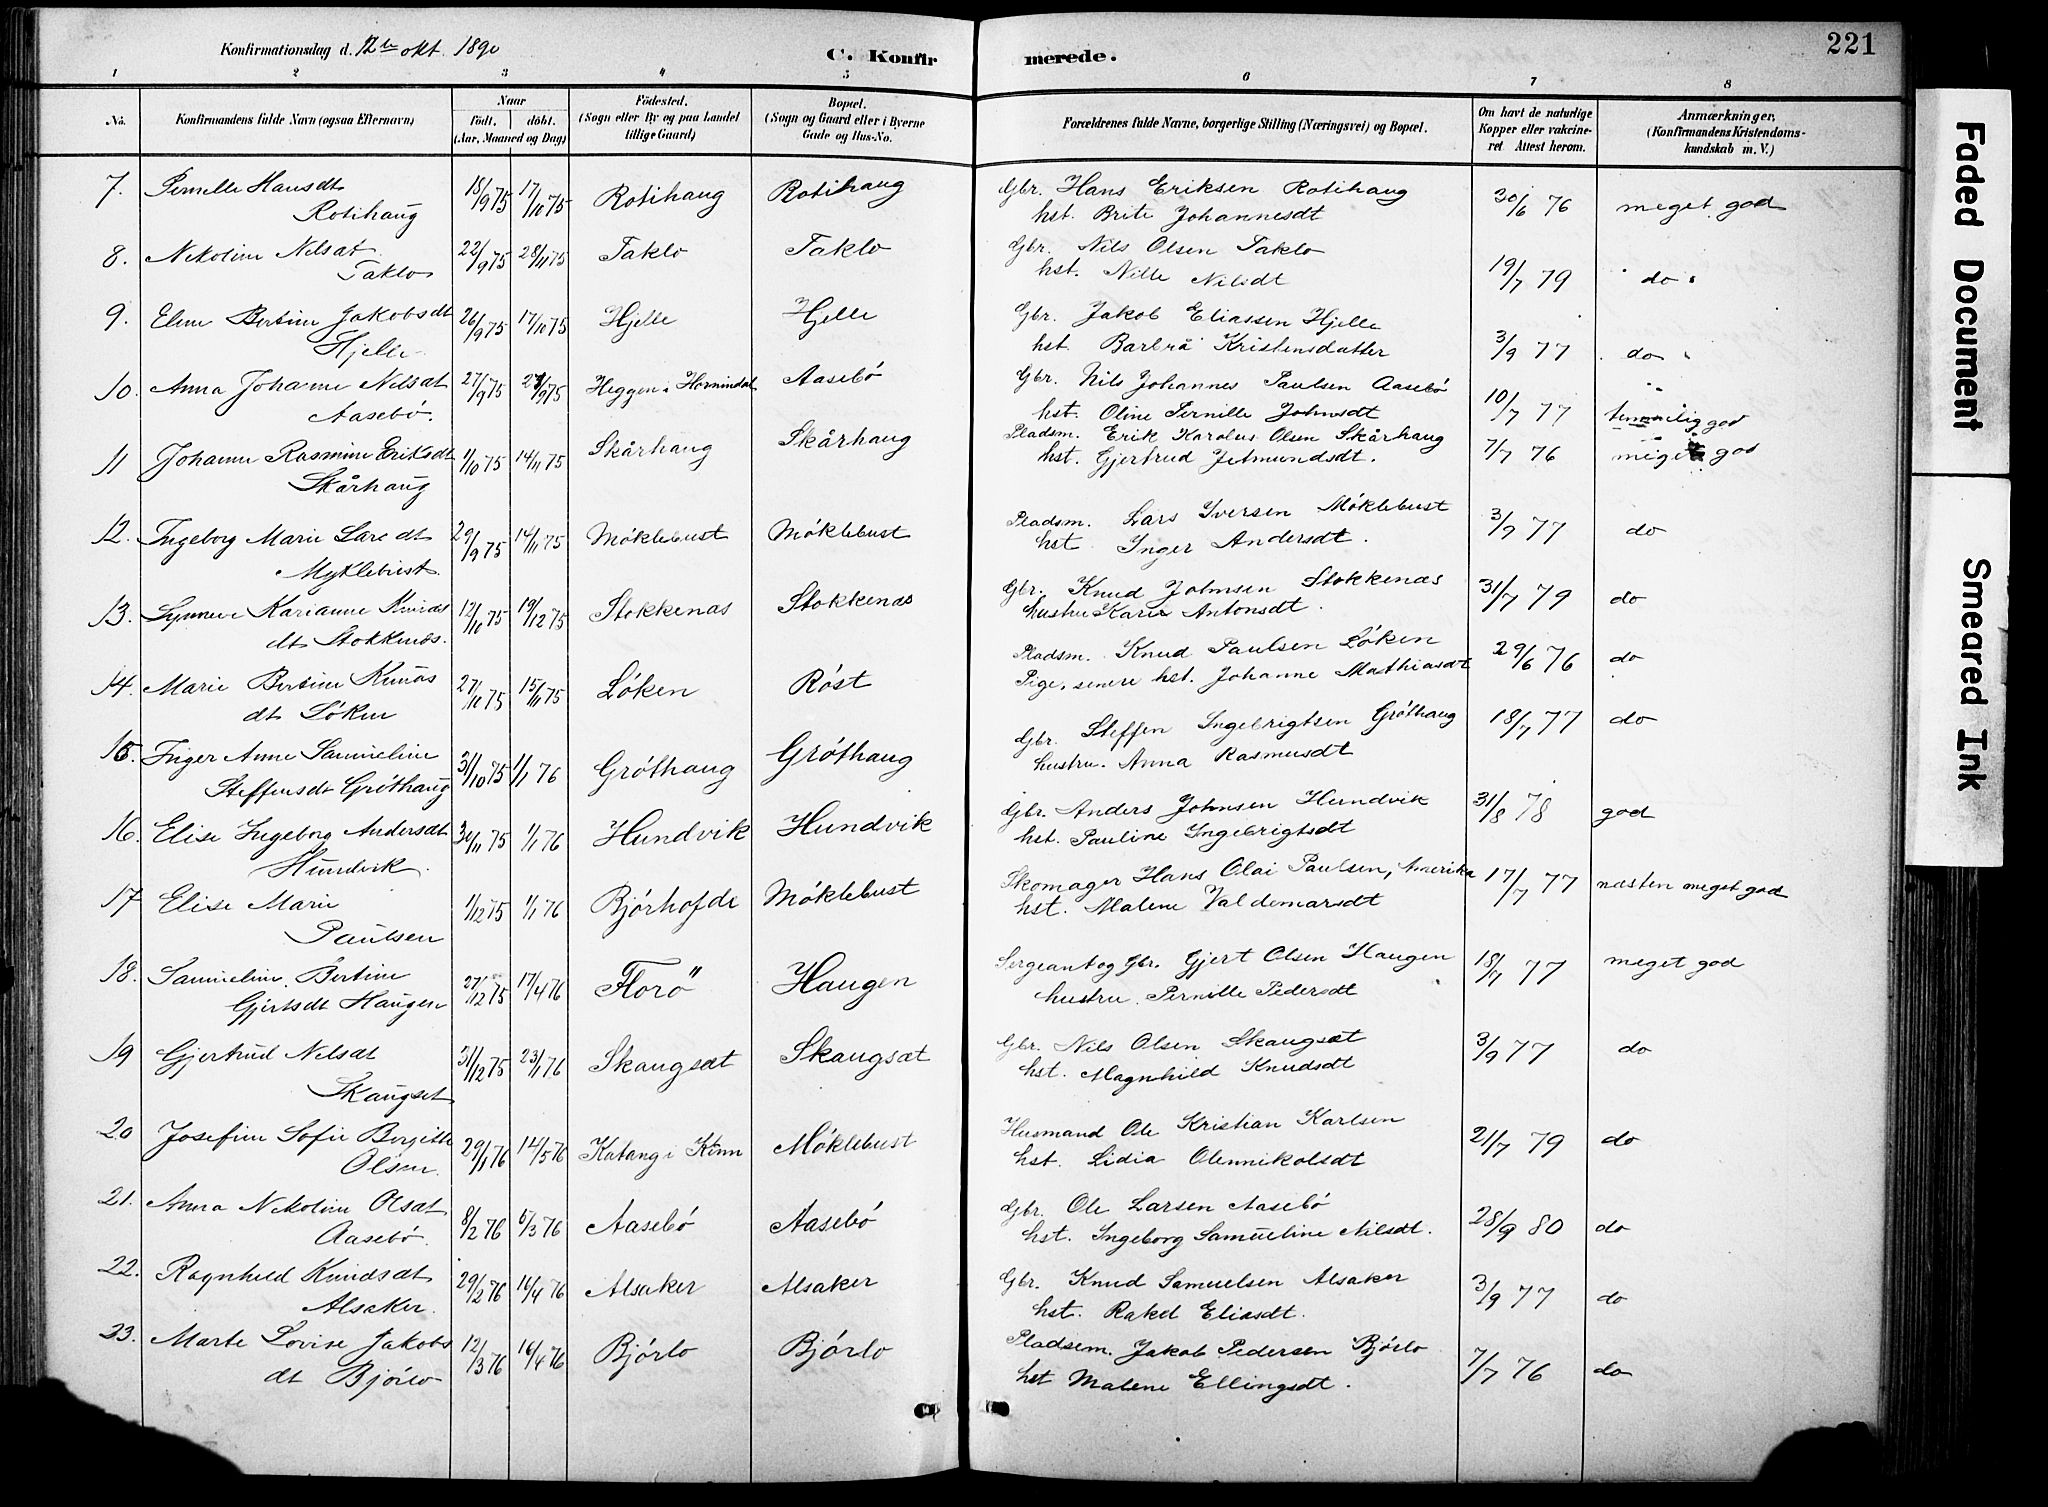 221
Konfirmationsdag d. 12te okt. 1890
C. Konfirmerede.
1 2 3 4 5 6 7 8
No. Konfirmandens fulde Navn (ogsaa Efternavn) Naar födt. döbt. (Aar, Maaned og Dag) Födested. (Sogn eller By og paa Landet tillige Gaard) Bopæl. (Sogn og Gaard eller i Byerne Gade og Hus-No. Forældrenes fulde Navne, borgerlige Stilling (Næringsvei) og Bopæl. Om havt de naturlige Kopper eller vakcineret Attest herom. Anmærkninger. (Konfirmandens Kristendomskundskab m. V.)
7. Pernille Hansdt 18/9 75 17/10 75 Rotihaug Rotihaug Gbr. Hans Eriksen Rotihaug 30/6 76 meget god
Rotihaug hst. Brite Johannesdt
8. Nikoline Nilsdt 22/9 75 28/11 75 Taklo Taklo Gbr. Nils Olsen Taklo 19/7 79 do
Taklo hst. Nille Nilsdt
9. Eline Bertine Jakobsdt 26/9 75 17/10 75 Hjelle Hjelle Gbr. Jakob Eliassen Hjelle 3/9 77 do
Hjelle hst. Barbrå Kristensdatter
10. Anna Johanne Nilsdt 27/9 75 Heggen i Hornindal Aasebö Gbr. Nils Johannes Paulsen Aasebö 10/7 77 temmelig god
Aasebö. hst. Oline Pernille Johnsdt
11 Johanne Rasmine Eriksdt 1/10 75 14/11 75 Skårhaug Skårhaug Pladsm. Erik Karolus Olsen Skårhaug 7/7 76 meget god
Skårhaug hst. Gjertrud Jetmundsdt.
12. Ingeborg Marie Larsdt 29/9 75 14/11 75 Möklebust Möklebust Pladsm. Lars Iversen Möklebust 3/9 77 do
Myklebust. hst. Inger Andersdt.
13. Synneve Karianne Knuds 12/10 75 19/12 75 Stokkenæs Stokkenæs Gbr. Knud Johnsen Stokkenæs 31/7 79 do
dt Stokkenæs. hustru Kari Antonsdt.
14. Marie Bertine Knuds 15/11 75 Löken Röst Pladsm. Knud Paulsen Löken 29/6 76 do
dt Löken Pige, senere hst. Johanne Mathiasdt
15. Inger Anne Samueline 31/10 75 1/1 76 Gröthaug Gröthaug Gbr. Steffen Ingebrigtsen Gröthaug 18/7 77 do
Steffensdt Gröthaug hustru. Anna Rasmusdt
16. Elise Ingeborg Andersdt 30/11 75 1/1 76 Hundvik Hundvik Gbr. Anders Johnsen Hundvik 31/8 78 god
Hundvik. hst. Pauline Ingebrigtsdt
17 Elise Marie 1/12 75 1/1 76 Björhofde Möklebust Skomager Hans Olai Paulsen, Amerika 17/7 77 næsten meget god
Paulsen hst. Malene Valdemarsdt
18. Samueline Bertine 27/12 75 17/4 76 Florö Haugen Sergeant og Gbr. Gjert Olsen Haugen 18/7 77 meget god
Gjertsdt Haugen hustru Pernille Pedersdt
19 Gjertrud Nilsdt 31/12 75 23/1 76 Skaugsæt Skaugsæt Gbr. Nils Olsen Skaugsæt 3/9 77 do
Skaugset hst. Magnhild Knudsdt
20 Josefine Sofie Bergitte 29/1 76 14/5 76 Katang i Kinn Möklebust Husmand Ole Kristian Karlsen 21/7 79 do
Olsen. hst. Lidia Olennikolsdt
21. Anna Nikoline Olsdt 8/2 76 5/3 76 Aasebö Aasebö Gbr. Ole Larsen Aasebö 28/9 80 do
Aasebö. hst. Ingeborg Samueline Nilsdt.
22. Ragnhild Knudsdt 29/2 76 16/4 76 Alsaker Alsaker Gbr. Knud Samuelsen Alsaker 3/9 77 do
Alsaker. hst. Rakel Eliasdt.
23. Marte Lovise Jakobs 12/3 76 16/4 76 Björlo Björlo Pladsem. Jakob Pedersen Björlo 7/7 76 do
dt Björlo hst Malene Ellingsdt.
Faded Document
Smeared Ink